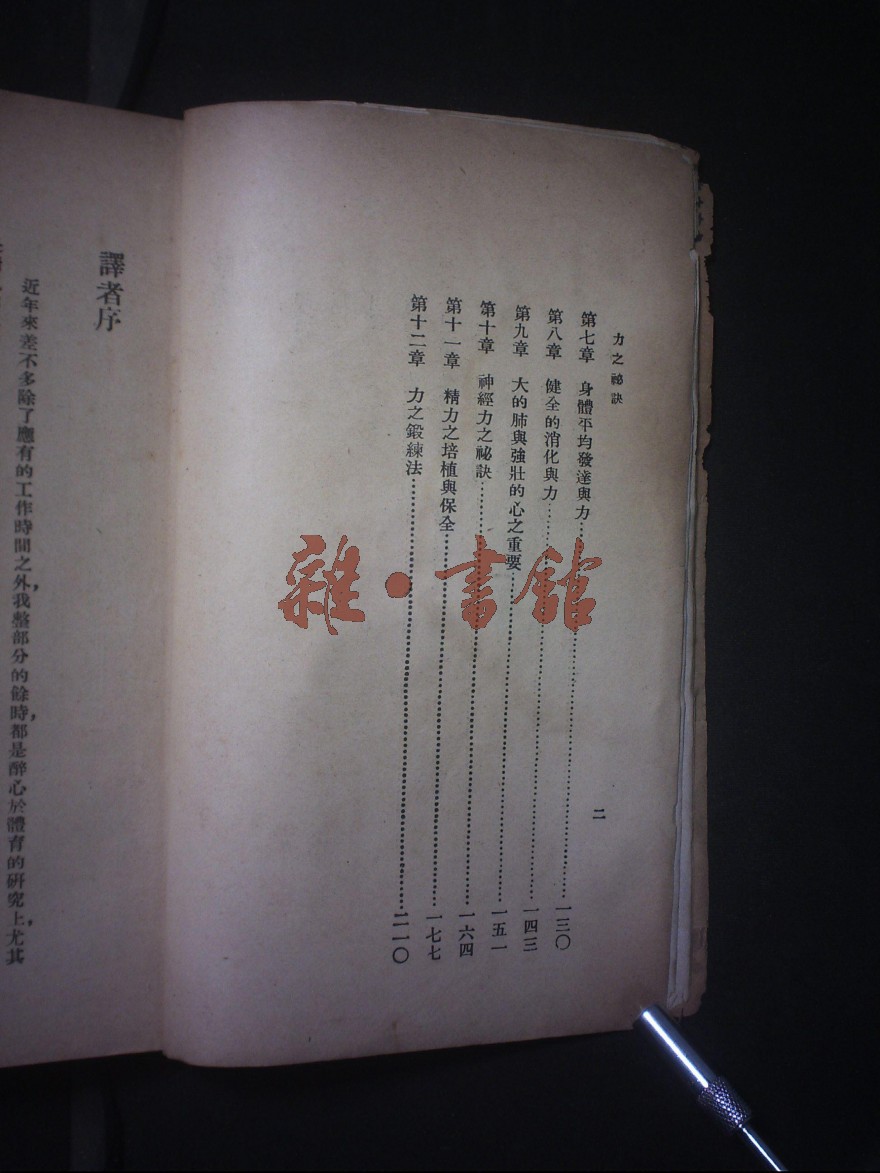 力之祕訣
第七章 身體平均發達與力……一三〇
第八章 健全的消化與力……一四三
第九章 大的肺與強壯的心之重要……一五一
第十章 神經力之祕訣……一六四
第十一章 精力之培植與保全……一七七
第十二章 力之鍛練法……二一〇
二
雜·書館
譯者序
近年來差不多除了應有的工作時間之外，我整部分的餘時，都是醉心於體育的研究上，尤其